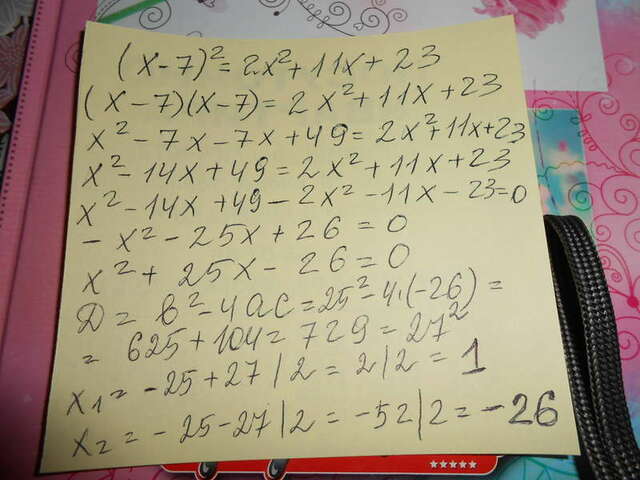 (x-7)² = 2x² + 11x + 23
(x-7)(x-7) = 2x² + 11x + 23
x² - 7x - 7x + 49 = 2x² + 11x + 23
x² - 14x + 49 = 2x² + 11x + 23
x² - 14x + 49 - 2x² - 11x - 23 = 0
- x² - 25x + 26 = 0
x² + 25x - 26 = 0
Д = в² - 4ac = 25² - 4·(-26) =
= 625 + 104 = 729 = 27²
x₁ = -25 + 27 / 2 = 2 / 2 = 1
x₂ = - 25 - 27 / 2 = -52 / 2 = -26